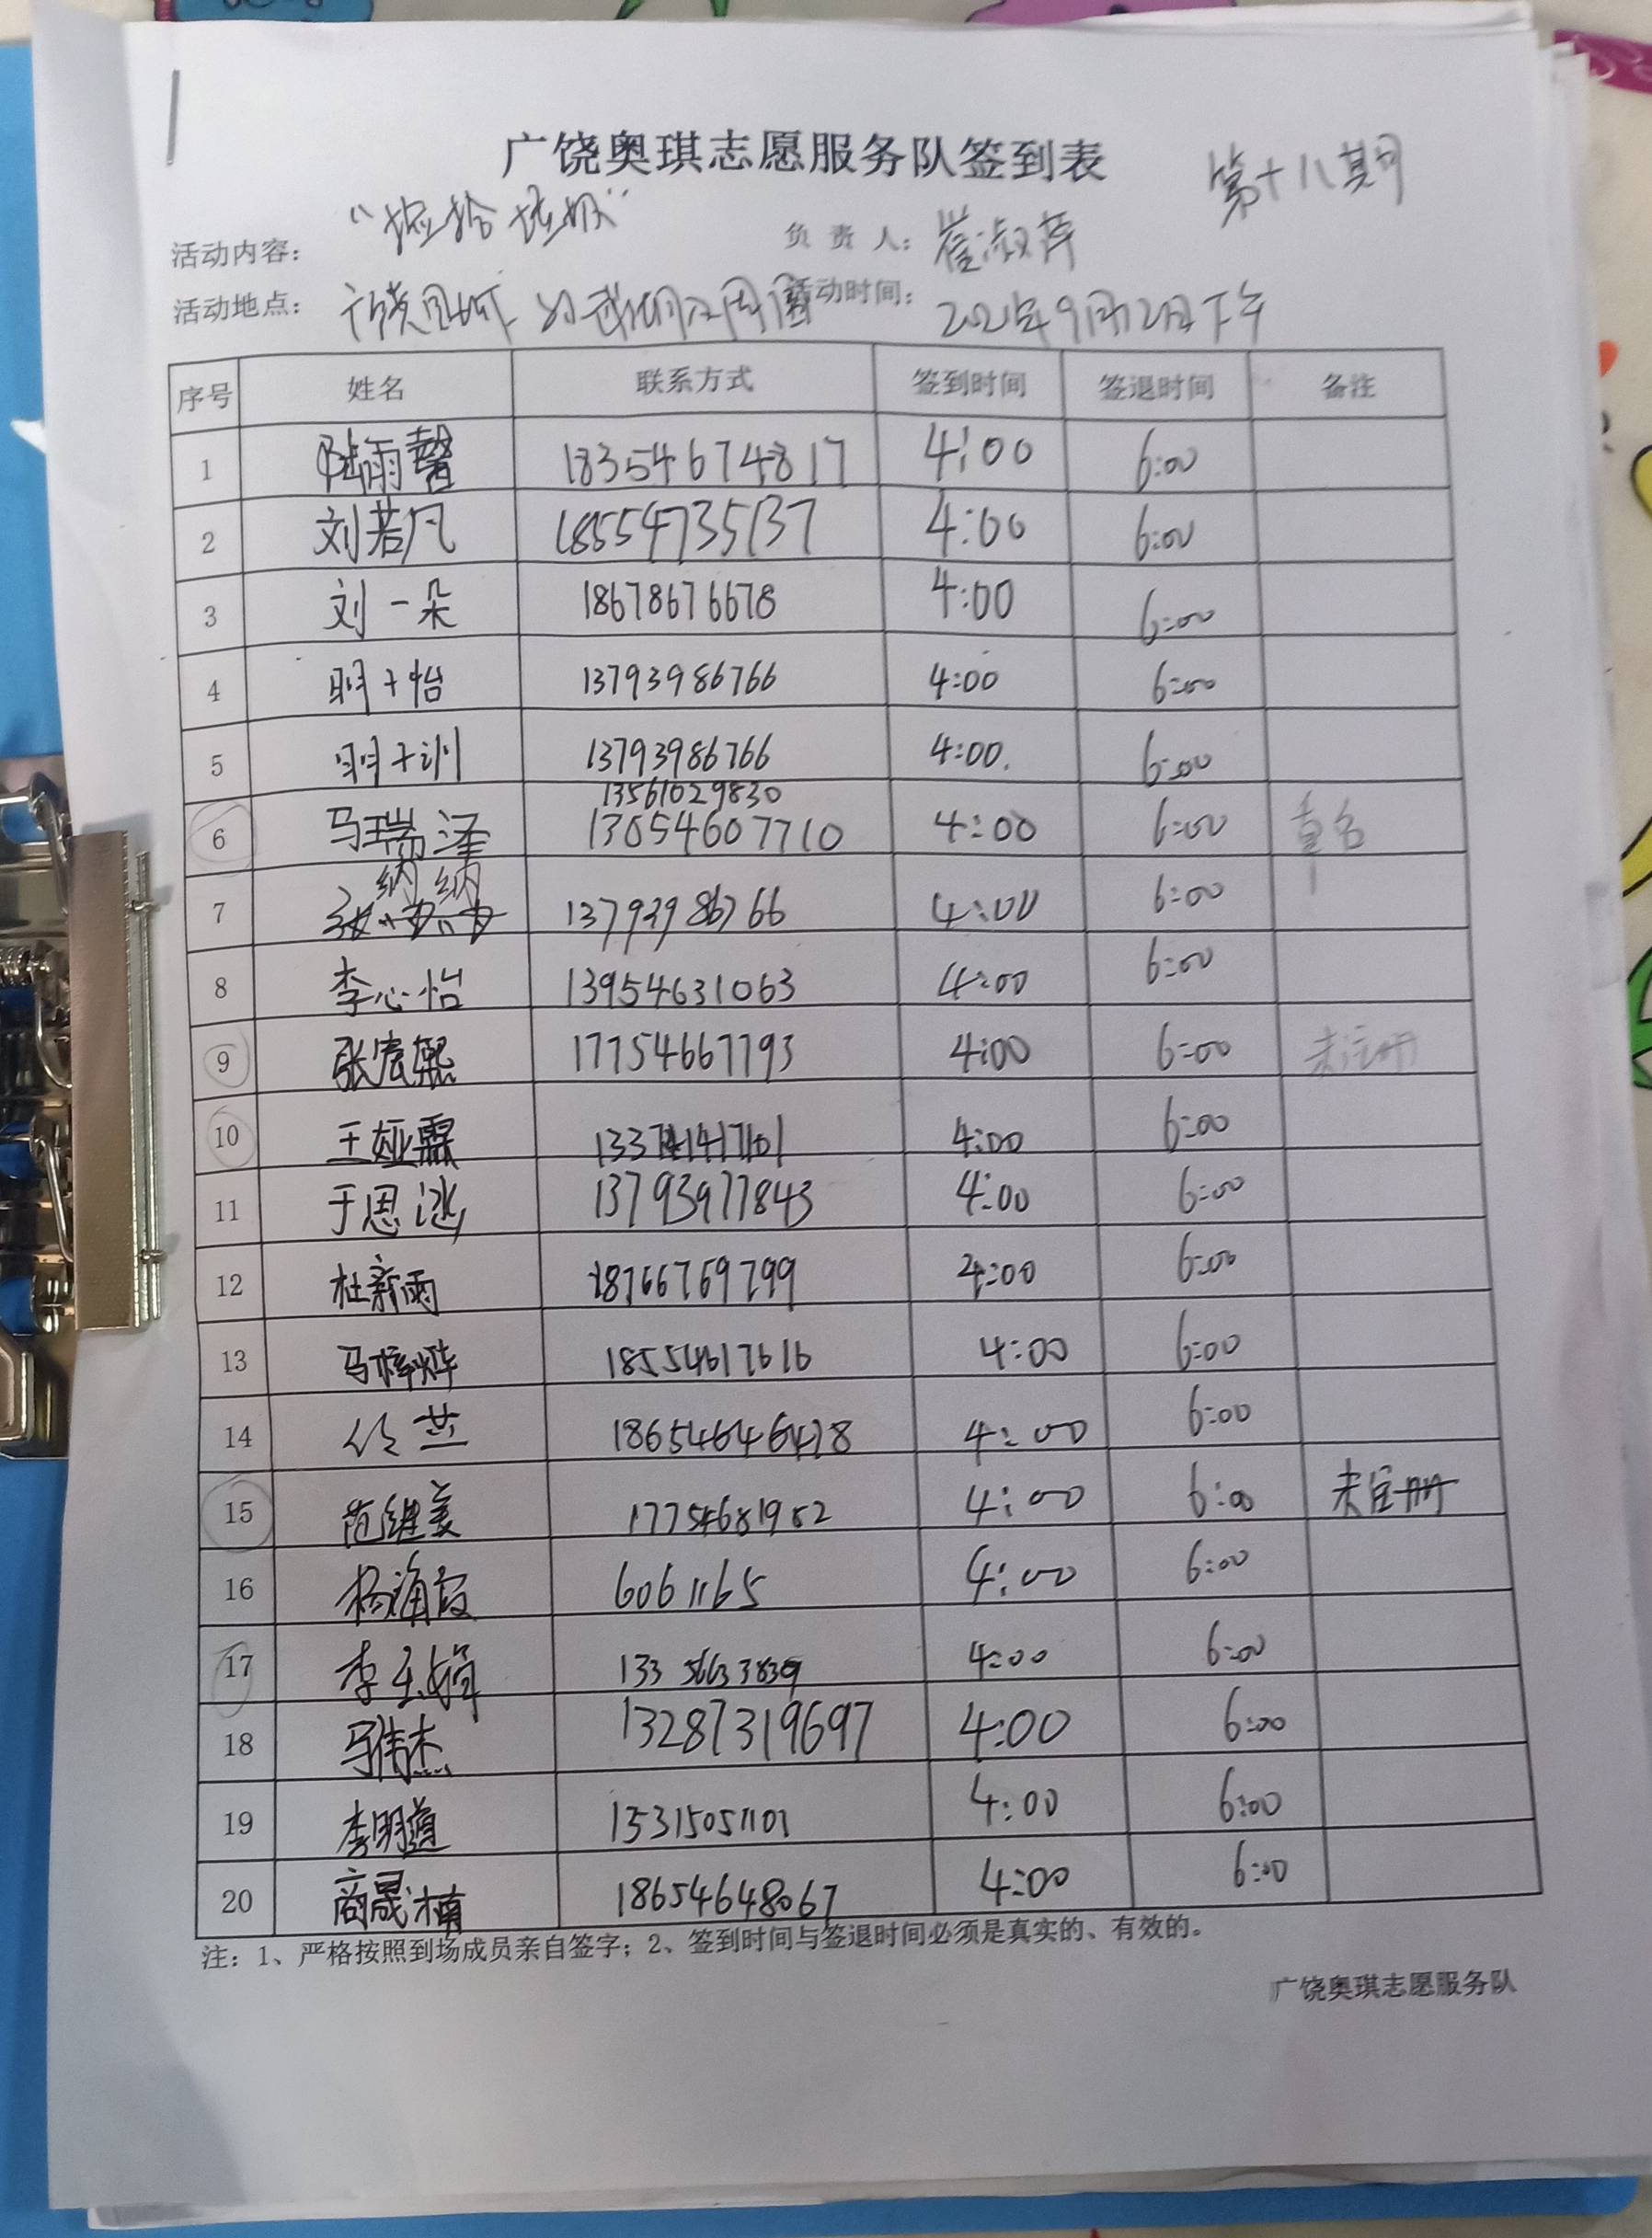 广饶奥琪志愿服务队签到表
第十八期
活动内容： “捡拾垃圾” 负责人： 崔淑萍
活动地点： 孙武湖及周围 活动时间： 2021年9月12日下午
序号 姓名 联系方式 签到时间 签退时间 备注
1 陆雨馨 18354674817 4:00 6:00
2 刘若凡 18554735137 4:00 6:00
3 刘一朵 18678676678 4:00 6:00
4 明十怡 13793986766 4:00 6:00
5 明十训 13793986766 4:00. 6:00
13561029830
6 马瑞泽 13054607710 4:00 6:00 重名
7 纳纳 13793986766 4:00 6:00
8 李心怡 13954631063 4:00 6:00
9 张宏熙 17754667793 4:00 6:00 未注册
10 王娅霖 4:00 6:00
11 于思 13793977843 4:00 6:00
12 杜新雨 18766769799 4:00 6:00
13 马梓烨 18554617616 4:00 6:00
14 18654646478 4:00 6:00
15 范继美 17754681982 4:00 6:00 未注册
16 杨海霞 6061165 4:00 6:00
17 李玉娟 13356633839 4:00 6:00
18 马伟杰 13287319697 4:00 6:00
19 李明道 15315051101 4:00 6:00
20 商晟楠 18654648067 4:00 6:00
注：1、严格按照到场成员亲自签字；2、签到时间与签退时间必须是真实的、有效的。
广饶奥琪志愿服务队